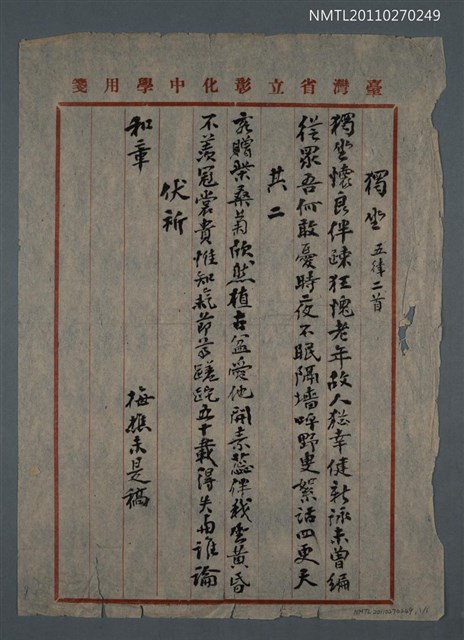 NMTL20110270249
臺灣省立彰化中學用箋
獨坐 五律二首
獨坐懷良伴疎狂愧老年故人猶幸健新詠未曾編
從眾吾何敢憂時夜不眠隔墻呼野叟絮話四更天
其二
友贈柴桑菊欣然植古盆愛他開素蕊伴我坐黃昏
不羨冠裳貴惟知氣節尊蹉跎五十載得失由誰論
伏祈
和章
梅樵未是稿
NMTL20110270249